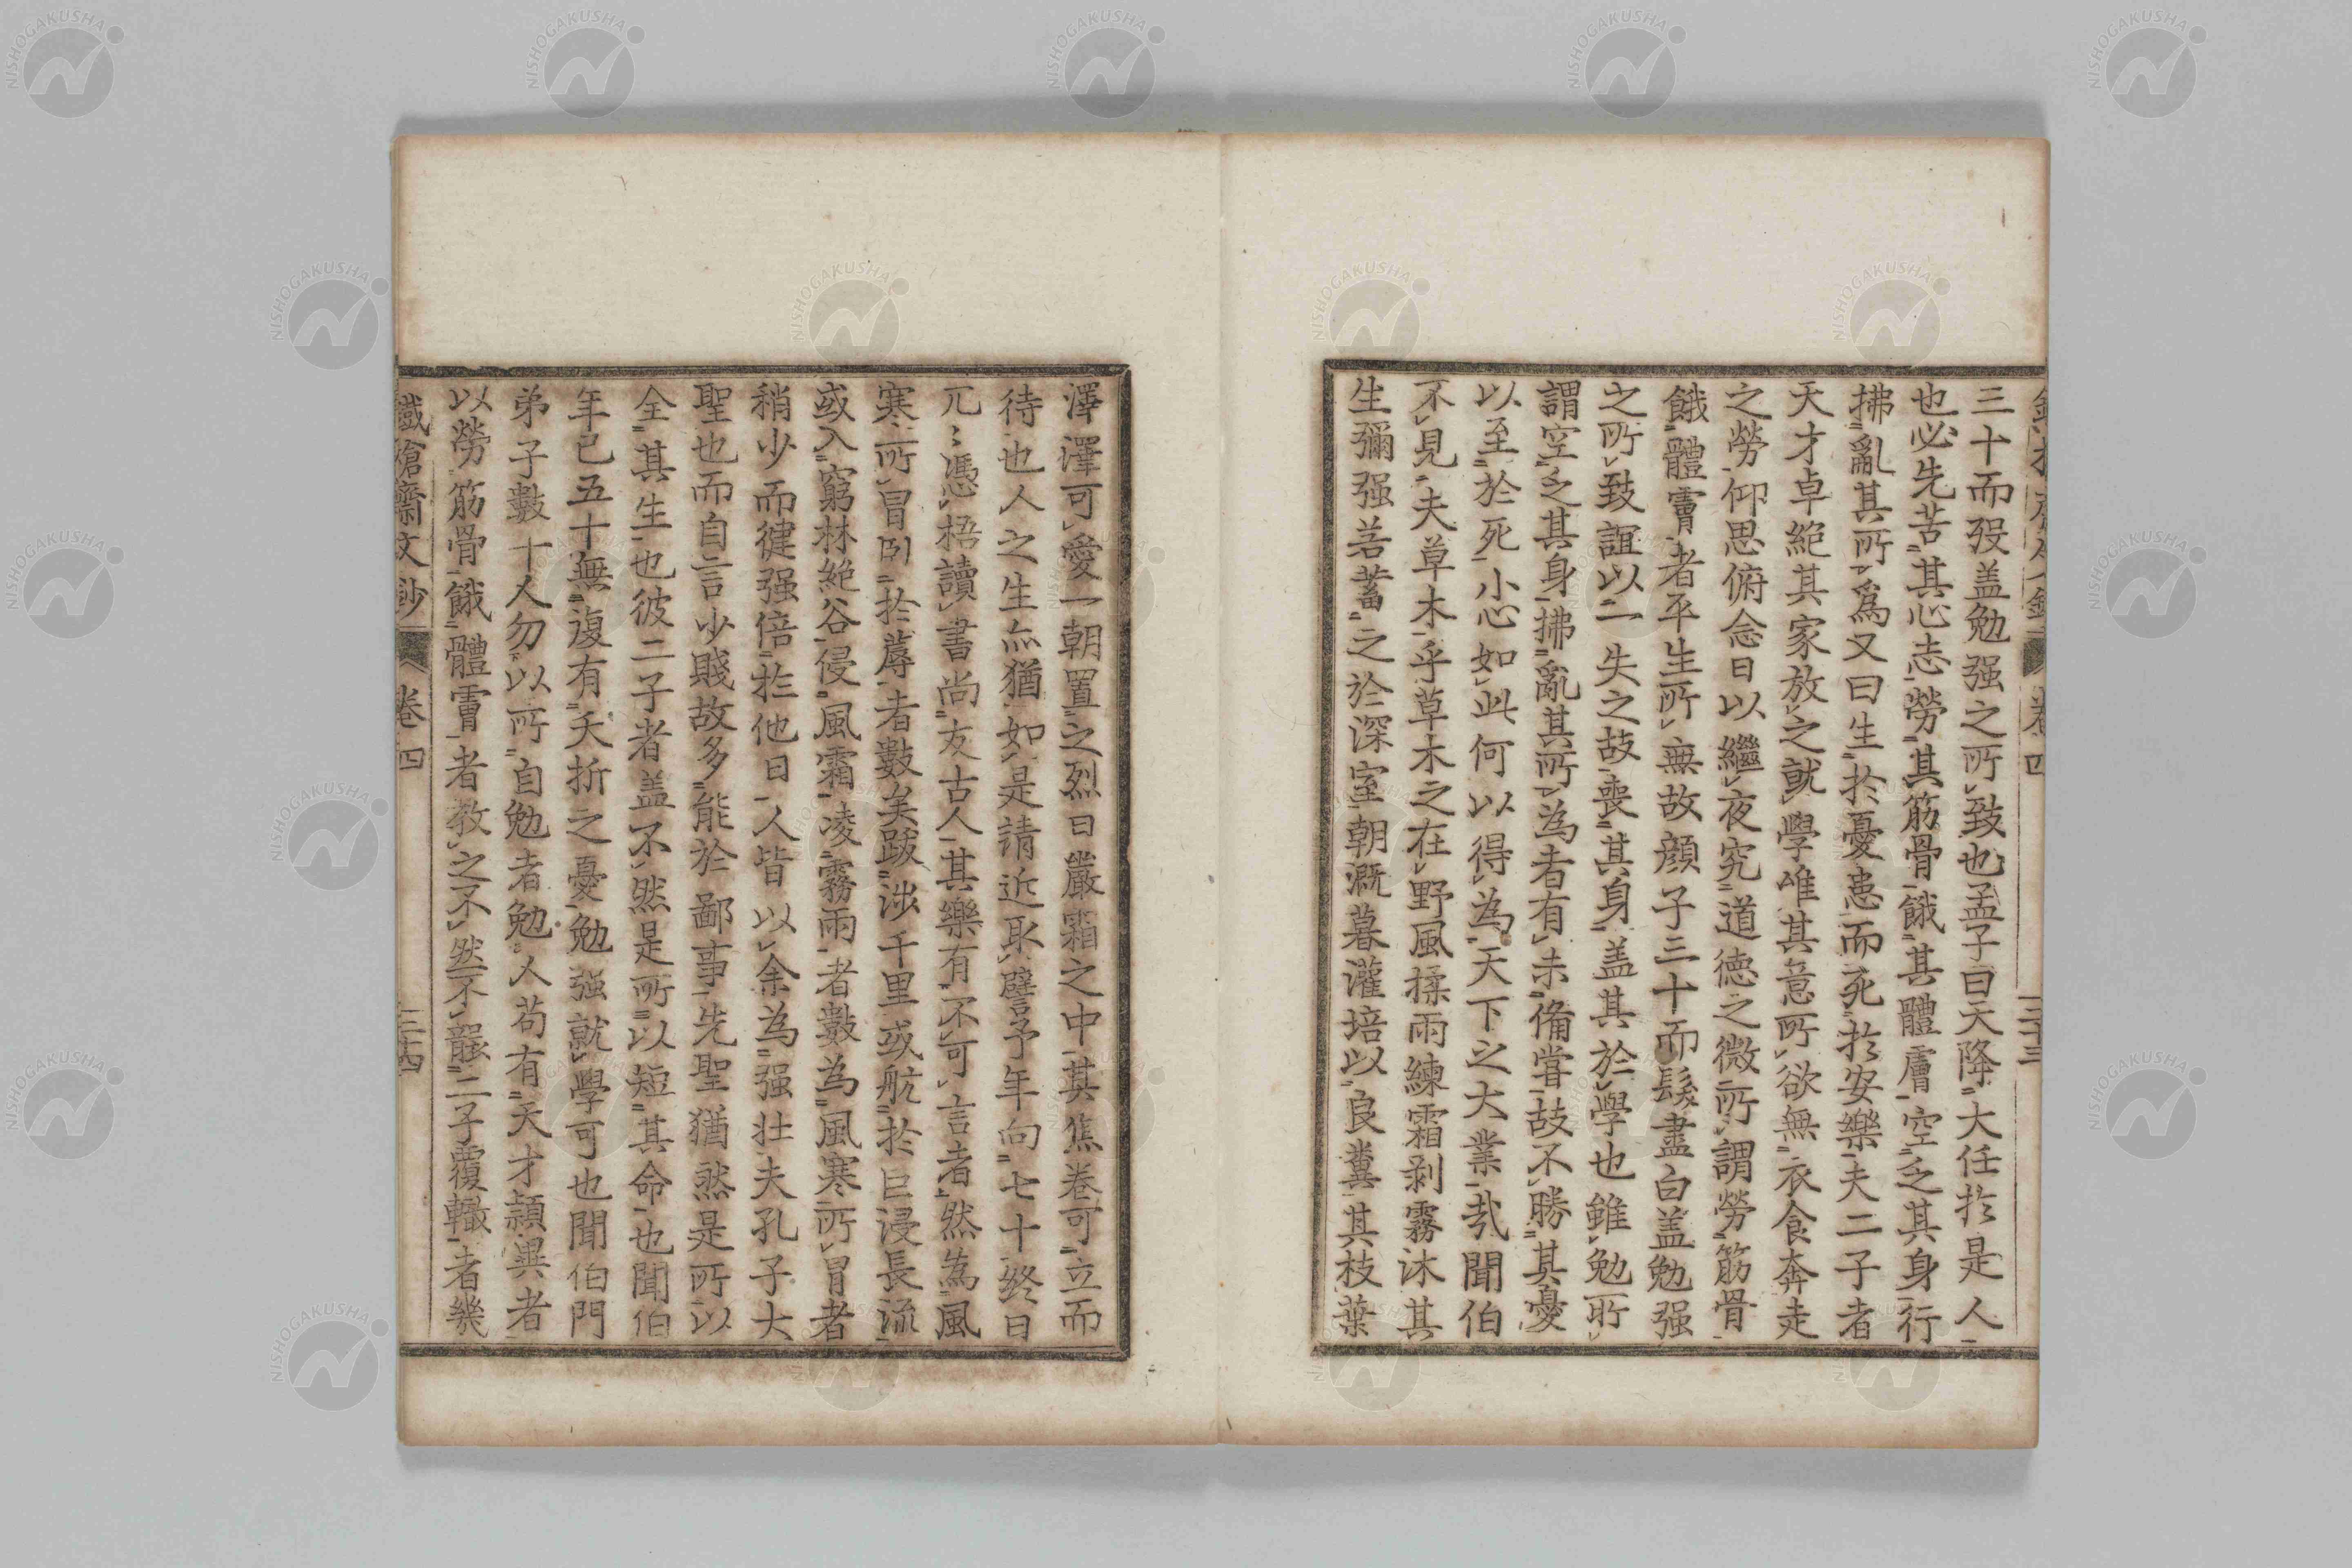 三十而歿盖勉强之所致也孟子曰天降大任於是人
也必先苦其心志勞其筋骨餓其體膚空乏其身行
拂亂其所爲又曰生於憂患而死於安樂夫二子者
天才卓絶其家放之就學唯其意所欲無衣食奔走
之勞仰思俯念日以繼夜究道德之微所謂勞筋骨
餓體膚者平生所無故顔子三十而髮盡白盖勉强
之所致誼以一失之故喪其身盖其於學也雖勉所
謂空乏其身拂亂其所為者有未備嘗故不勝其憂
以至於死小心如此何以得為天下之大業哉聞伯
不見夫草木乎草木之在野風揉雨練霜剥霧沐其
生彌强若蓄之於深室朝漑暮灌培以良糞其枝葉
卷四
三十三
澤澤可愛一朝置之烈日嚴霜之中其焦卷可立而
待也人之生亦猶如是請近取譬予年向七十終日
兀々憑梧讀書尚友古人其樂有不可言者然為風
寒所冒卧於蓐者數矣跋涉千里或航於巨浸長流
或入窮林絶谷侵風霜凌霧雨者數為風寒所冒者
稍少而健强倍於他日人皆以余為强壮夫孔子大
聖也而自言少賤故多能於鄙事先聖猶然是所以
全其生也彼二子者盖不然是所以短其命也聞伯
年已五十無復有夭折之憂勉强就學可也聞伯門
弟子數十人勿以所自勉者勉人苟有天才頴異者
以勞筋骨餓體膚者教之不然不罷二子覆轍者幾
鐵槍齋文鈔
卷四
三十四
NISHOGAKUSHA